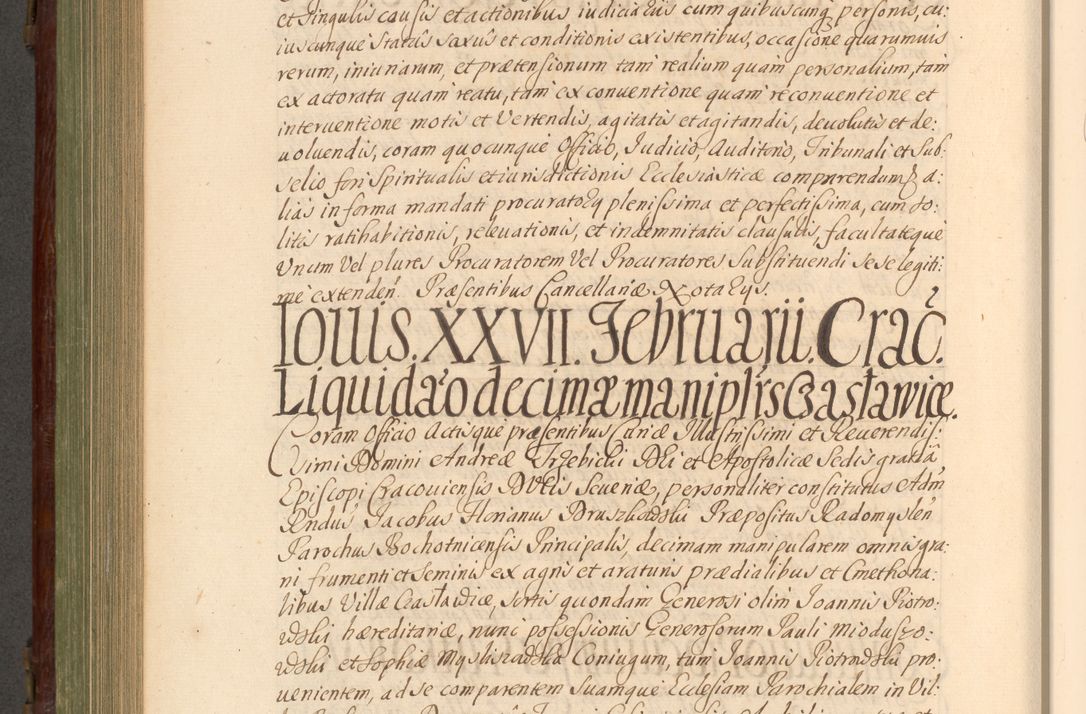 et singulis causis et actionibus iudiciarijs cum quibuscunq personis, cu:
ius cunque Status sexus et conditionis existentibus, occasione quarumuis
rerum, iniuriarum, et prætensionum tam realium quam personalium, tam
ex actoratu quam reatu, tam ex conuentione quam reconuentione et
interuentione motis et Vertendis, agitatis et agitandis, deuolutis et de:
uoluendis, coram quocunque Officio, Judicio, Auditorio, Tribunali et Sub:
selio fori Spiritualis et iurisdictionis Ecclesiasticæ comparendum a:
lias in forma mandati procuratorij plenissima et perfectissima, cum so:
litis ratihabitionis, releuationis, et indemnitatis clausulis, facultateque
Vnum Vel plures Procuratorem Vel Procuratores Substituendi sese legiti:
me extenden. Præsentibus Cancellariæ Notarijs.
Iouis. XXVII. Februarii. Crac.
Liquidao decimæ maniplrs Czasławicæ.
Coram Officio Actisque præsentibus Curiæ Illustrissimi et Reuerendis:
simi Domini Andreæ Trzebicki Dei et Apostolicæ Sedis gratia
Episcopi Cracouiensis Ducis Seueriæ, personaliter constitutus Adm
Rndus Jacobus Florianus Bruszkowski Præpositus Radomyslen
Parochus Bochotnicensis Principalis, decimam manipularem omnis gra:
ni frumenti et seminis ex agris et araturis prædialibus et Cmethona:
libus Villæ Czasławicæ, sortis quondam Generosi olim Joannis Piotro:
wski hæreditariæ, nunc possessionis Generosorum Pauli Miodusző:
wski et Sophiæ Mysliszowskie Coniugum, tum Joannis Piotrowski pro:
uenientem, ad se comparentem suamque Ecclesiam Parochialem in Vil: